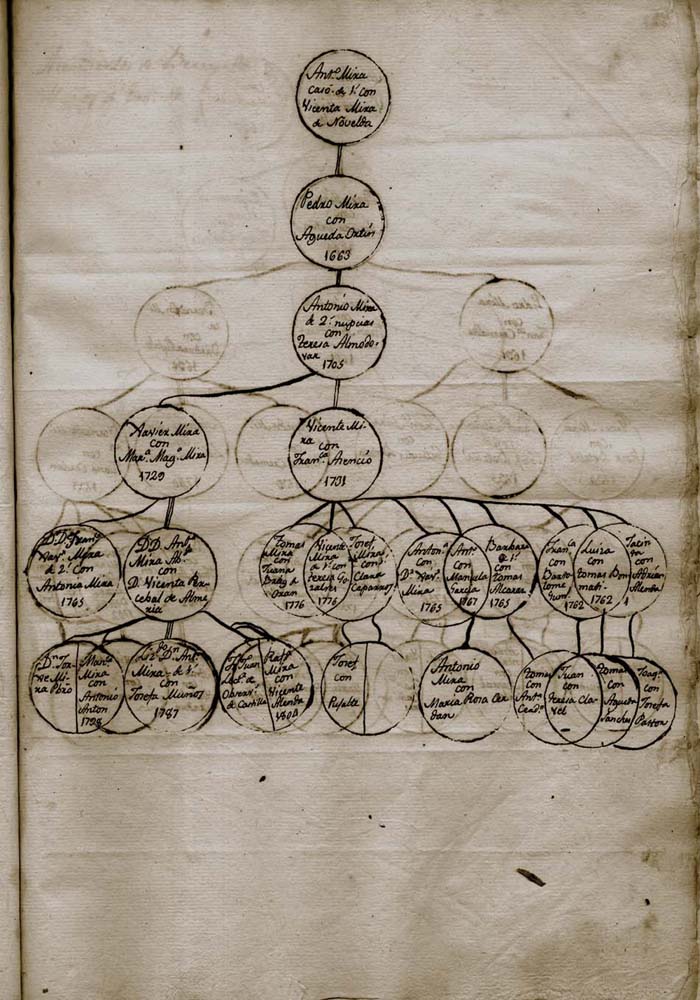 Antº Mira
casó de 1ª con
Vicenta Mira
de Novelda
Pedro Mira
con
Agueda Ortin
1663
Antonio Mira
de 2ª nupcias
con
Teresa Almodo-
var
1705
Xavier Mira
con
Marª Magª Mira
1729
Vicente Mi-
ra con
Franca Atencio
1731
Mira
de 2ª con
Antonia Mira
1765
D.D. Antº
Mira Abº
con
Dª Vicenta Per-
cebal de Alme
ria
Tomas
Mira
con
Juana
1776
Vicente
Mira
a 1ª con
Teresa Go
zalves
1776
Josef
Mira
con
Clara
Caparros
Antonª
con
Dn Xavr
Mira
1765
Antª
con
Manuela
Garcia
1767
Barbara
de 1ª
con
Tomas
Alcaraz
1765
Franca
con
Barto
lomé
1762
Luisa
con
Tomas Bon
mati
1762
Jacin
ta con
Mira
Manª
Mira
con
Antonio
Anton
1798
Ldo Dn Antº
Mira de 1ª
con
Josefa Muñoz
1787
Observª
de Castilla
Rafª
Mira
con
Vicenta
Josef
con
Antonio
Mira
con
Maria Rosa Cer
dan
Tomas
con
Antª
Cerdª
Juan
con
Teresa Cla-
vel
Tomas
con
Agueda
Sanches
Joaqª
con
Josefa
Pastor